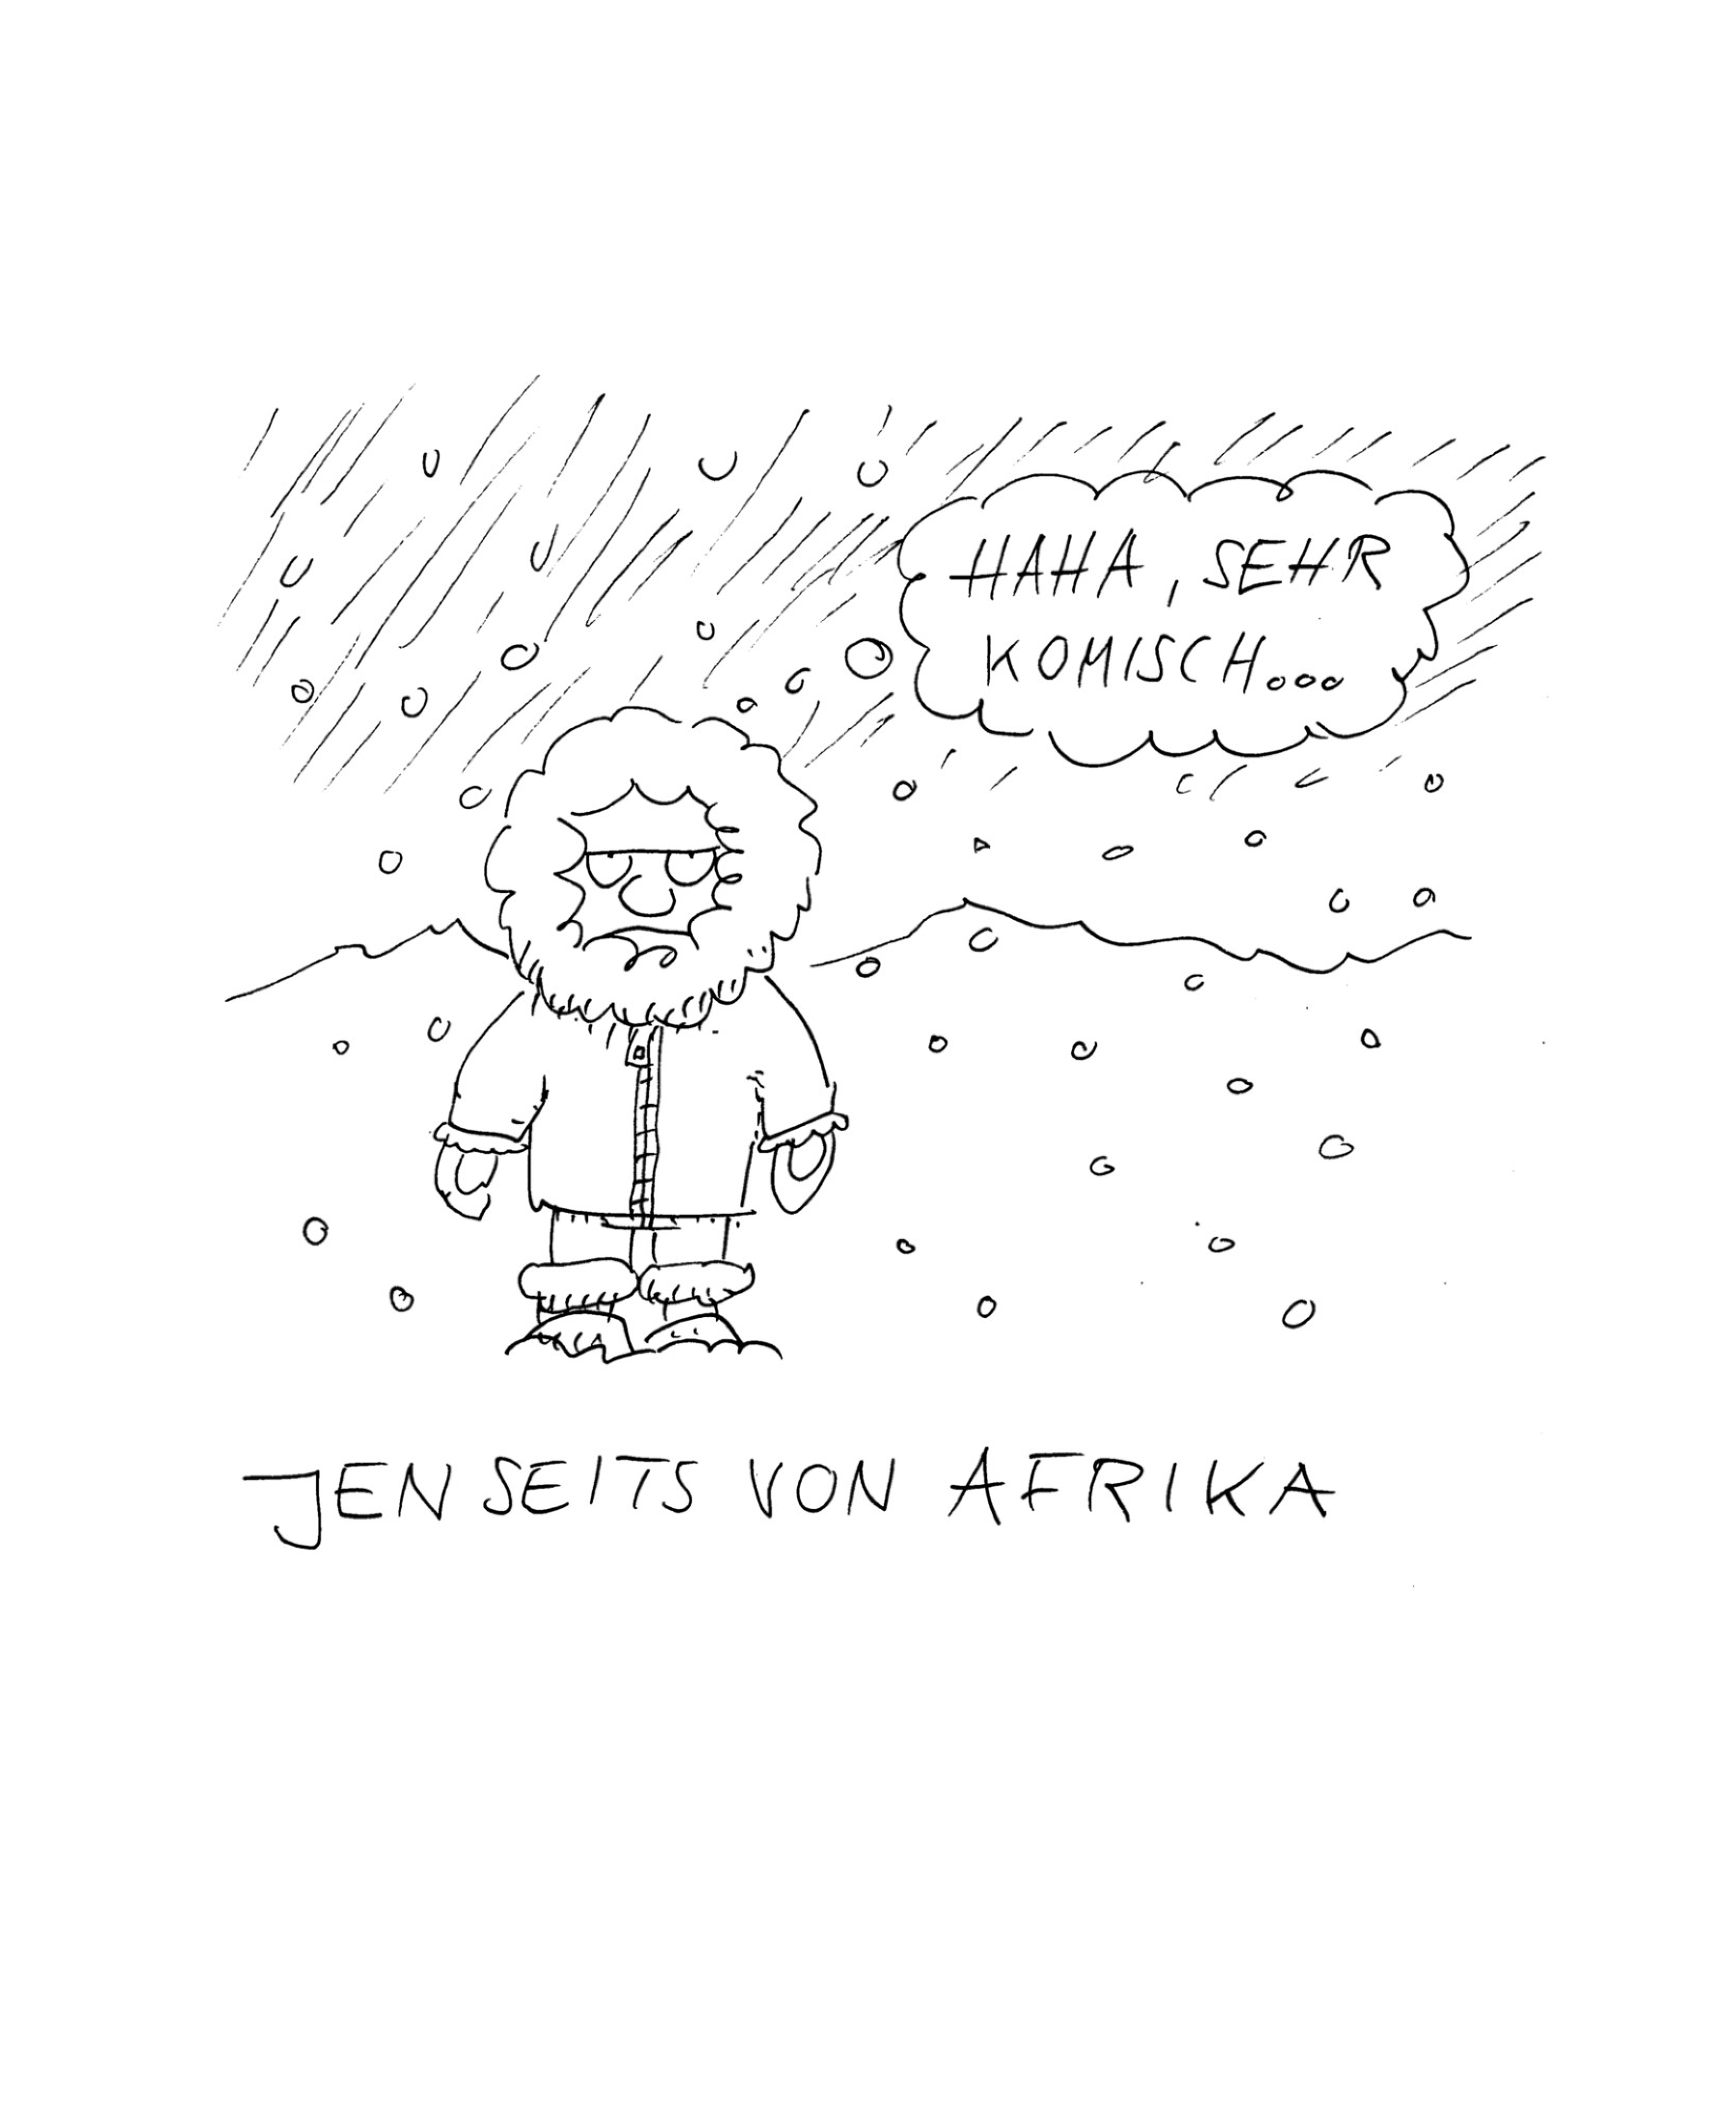 HAHA, SEHR
KOMISCH...
JENSEITS VON AFRIKA